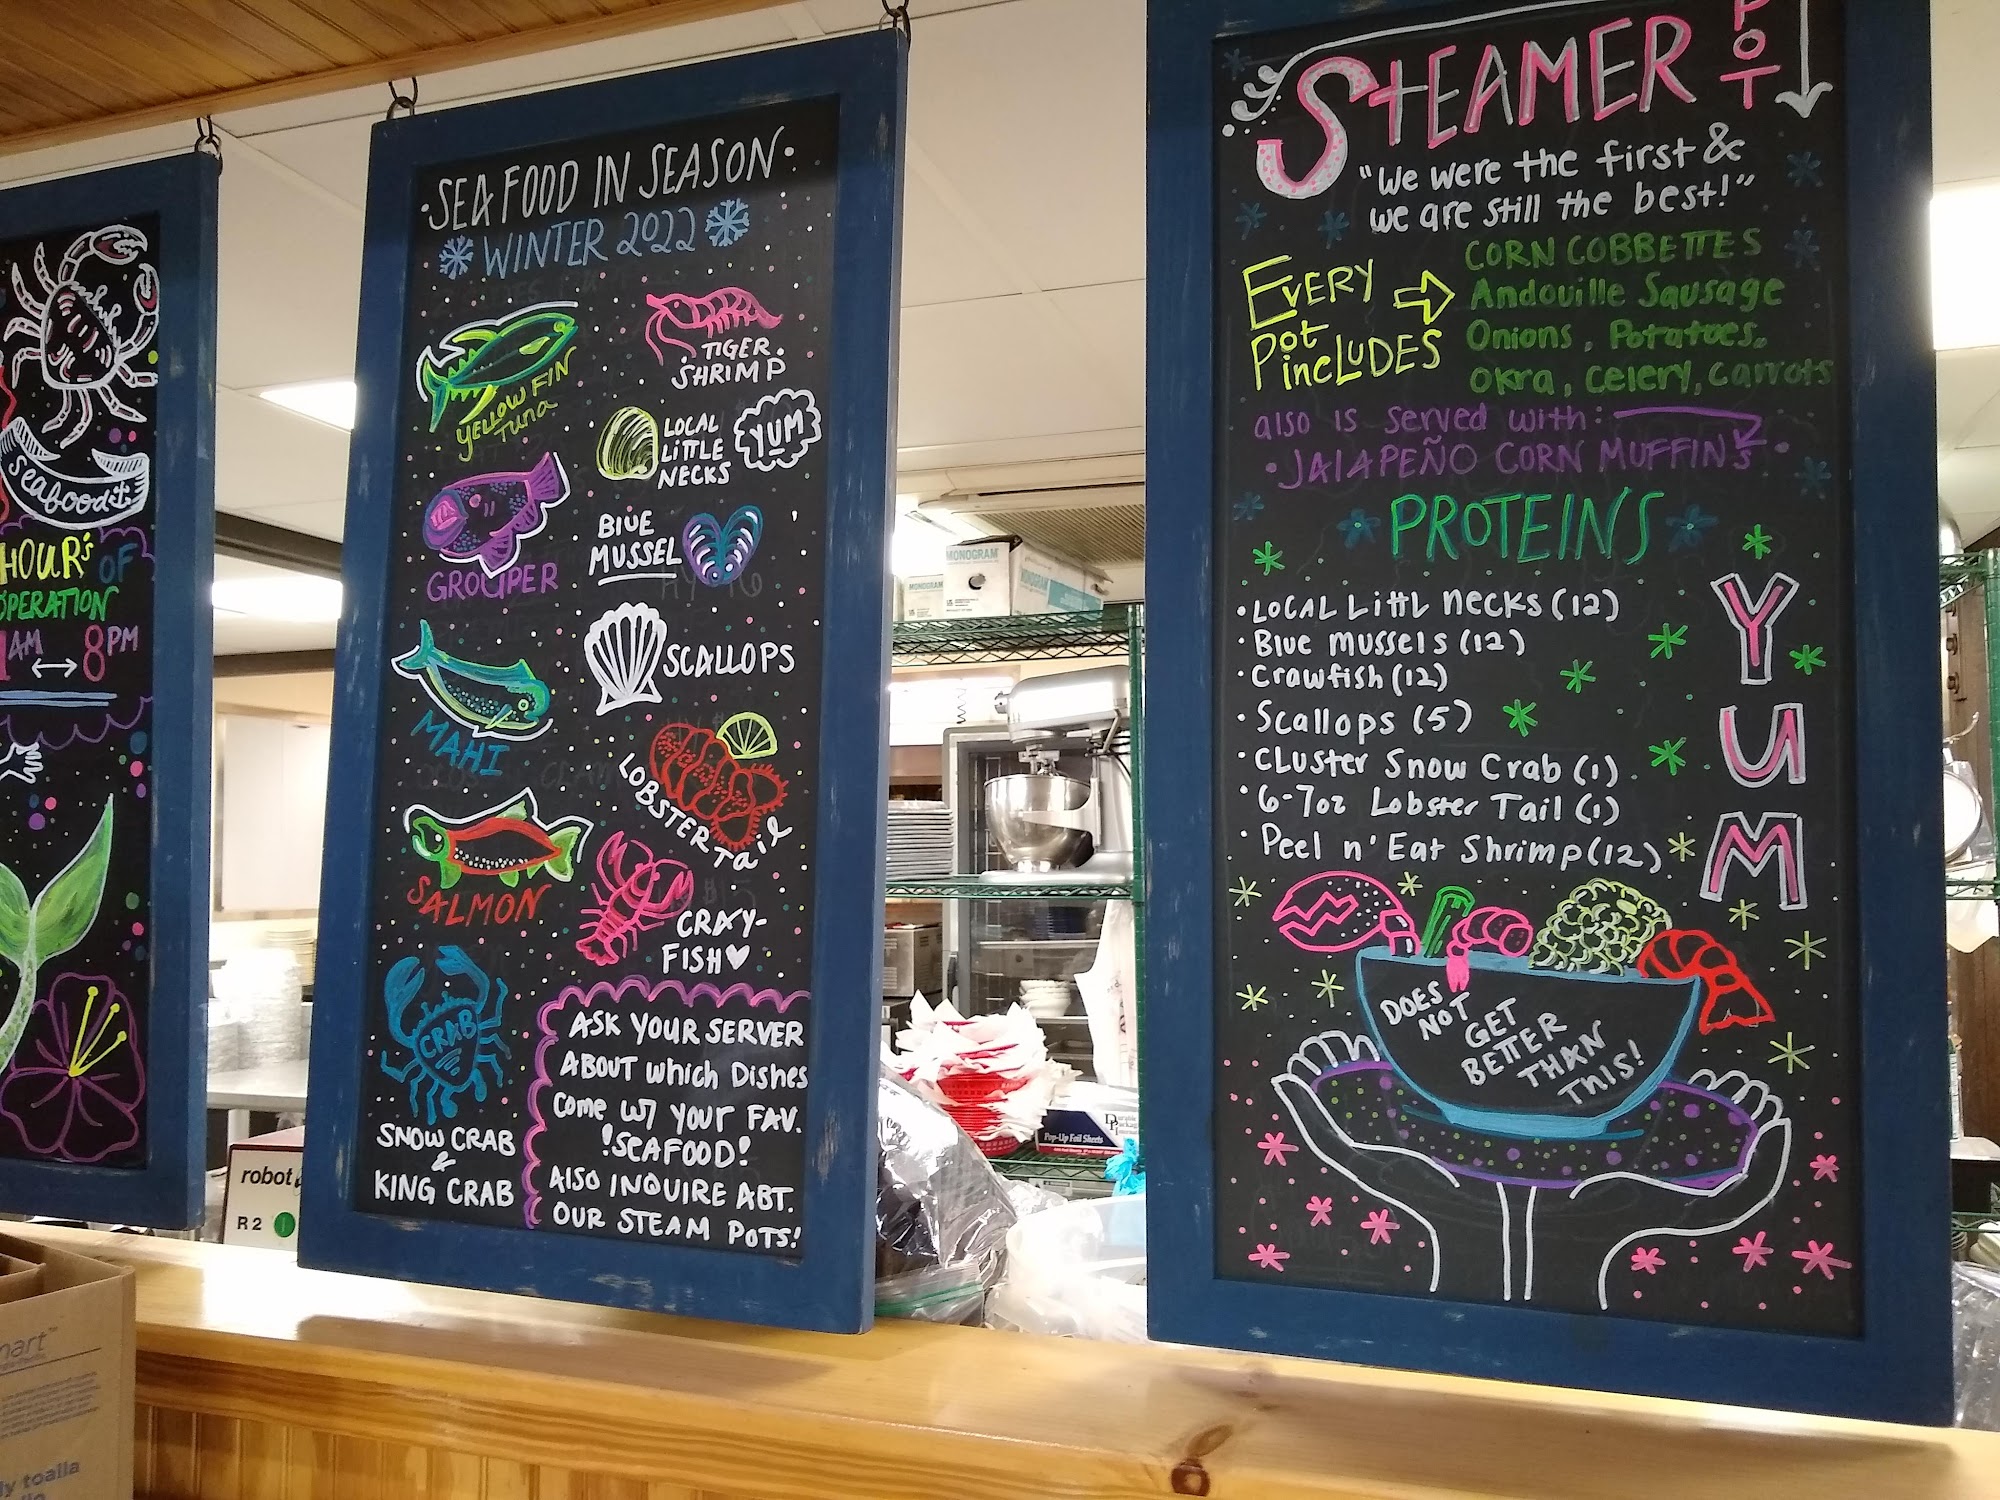 seafood it
HOUR'S OF
OPERATION
AM ↔ 8PM
SEAFOOD IN SEASON
WINTER 2022
YELLOW FIN
TUNA
TIGER
SHRIMP
LOCAL
LITTLE
NECKS
YUM
GROUPER
BLUE
MUSSEL
MAHI
SCALLOPS
LOBSTER Tail
SALMON
CRAY-
FISH
CRAB
SNOW CRAB
&
KING CRAB
ASK YOUR SERVER
ABOUT which DisHes
Come W/ YOUR FAV.
!SEAFOOD!
ALSO INQUIRE ABT.
OUR STEAM POTS!
STEAMER POT
"We were the first &
we are still the best!"
EVERY
Pot
incLUDES
CORN COBBETTES
Andouille Sausage
Onions, Potatoes,
Okra, Celery, Carrots
also is served with:
• JALAPEÑO CORN MUFFINs •
PROTEINS
• LOCAL LittL necks (12)
• Blue mussels (12)
• Crawfish (12)
• Scallops (5)
• CLuster Snow Crab (1)
• 6-7oz Lobster Tail (1)
• Peel n' Eat Shrimp (12)
YUM
DOES
NOT
GET
BETTER
THAN
THIS!
MONOGRAM
MONOGRAM
MONOGRAM
Pop-Up Foil Sheets
robot
R 2
mart™